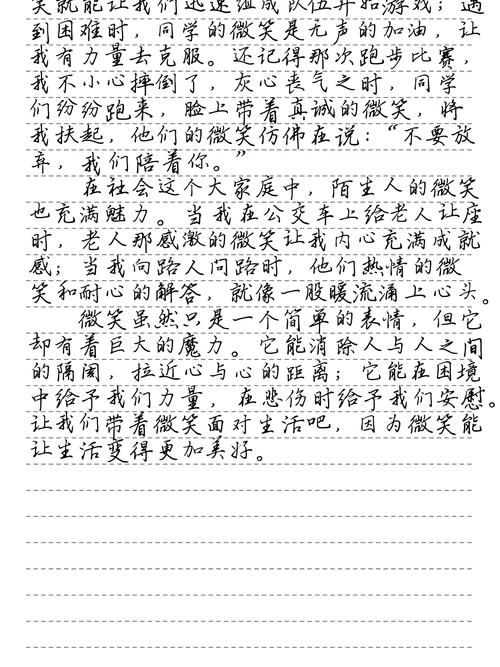 笑就能让我们迅速组成队伍开始游戏；遇
到困难时，同学的微笑是无声的加油，让
我有力量去克服。还记得那次跑步比赛，
我不小心摔倒了，灰心丧气之时，同学
们纷纷跑来，脸上带着真诚的微笑，将
我扶起，他们的微笑仿佛在说：“不要放
弃，我们陪着你。”
在社会这个大家庭中，陌生人的微笑
也充满魅力。当我在公交车上给老人让座
时，老人那感激的微笑让我内心充满成就
感；当我向路人问路时，他们热情的微
笑和耐心的解答，就像一股暖流涌上心头。
微笑虽然只是一个简单的表情，但它
却有着巨大的魔力。它能消除人与人之间
的隔阂，拉近心与心的距离；它能在困境
中给予我们力量，在悲伤时给予我们安慰。
让我们带着微笑面对生活吧，因为微笑能
让生活变得更加美好。